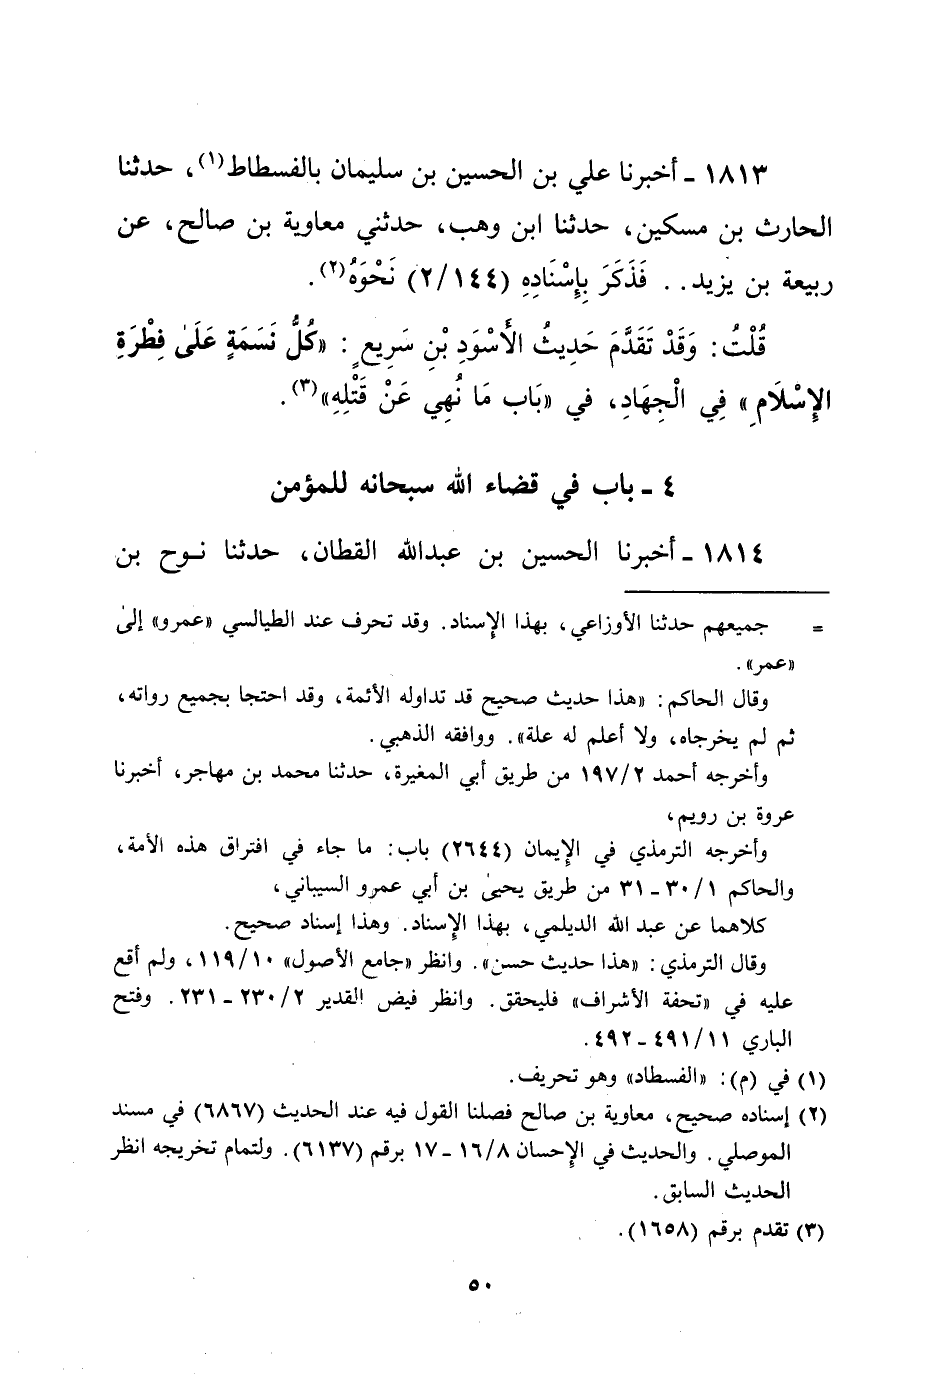 ١٨١٣ ـ أخبرنا علي بن الحسين بن سليمان بالفسطاط(١)، حدثنا
الحارث بن مسكين، حدثنا ابن وهب، حدثني معاوية بن صالح، عن
ربيعة بن يزيد.. فَذَكَرَ بِإِسْنَادِهِ (٢/١٤٤) نَحْوَهُ(٢).
قُلْتُ: وَقَدْ تَقَدَّمَ حَدِيثُ الأَسْوَدِ بْنِ سَرِيعٍ: «كُلُّ نَسَمَةٍ عَلَىٰ فِطْرَةِ
الإِسْلَامِ» فِي الْجِهَادِ، في «بَاب مَا نُهِي عَنْ قَتْلِهِ»(٣).
٤ ـ باب في قضاء الله سبحانه للمؤمن
١٨١٤ ـ أخبرنا الحسين بن عبدالله القطان، حدثنا نوح بن
= جميعهم حدثنا الأوزاعي، بهذا الإسناد. وقد تحرف عند الطيالسي «عمرو» إلىٰ
«عمر».
وقال الحاكم: «هذا حديث صحيح قد تداوله الأئمة، وقد احتجا بجميع رواته،
ثم لم يخرجاه، ولا أعلم له علة». ووافقه الذهبي.
وأخرجه أحمد ١٩٧/٢ من طريق أبي المغيرة، حدثنا محمد بن مهاجر، أخبرنا
عروة بن رويم،
وأخرجه الترمذي في الإيمان (٢٦٤٤) باب: ما جاء في افتراق هذه الأمة،
والحاكم ٣٠/١ ـ ٣١ من طريق يحيىٰ بن أبي عمرو السيباني،
كلاهما عن عبد الله الديلمي، بهذا الإسناد. وهذا إسناد صحيح.
وقال الترمذي: «هذا حديث حسن». وانظر «جامع الأصول» ١١٩/١٠، ولم أقع
عليه في «تحفة الأشراف» فليحقق. وانظر فيض القدير ٢٣٠/٢ ـ ٢٣١. وفتح
الباري ٤٩١/١١ ـ ٤٩٢.
(١) في (م): «الفسطاد» وهو تحريف.
(٢) إسناده صحيح، معاوية بن صالح فصلنا القول فيه عند الحديث (٦٨٦٧) في مسند
الموصلي. والحديث في الإحسان ١٦/٨ ـ ١٧ برقم (٦١٣٧). ولتمام تخريجه انظر
الحديث السابق.
(٣) تقدم برقم (١٦٥٨).
٥٠